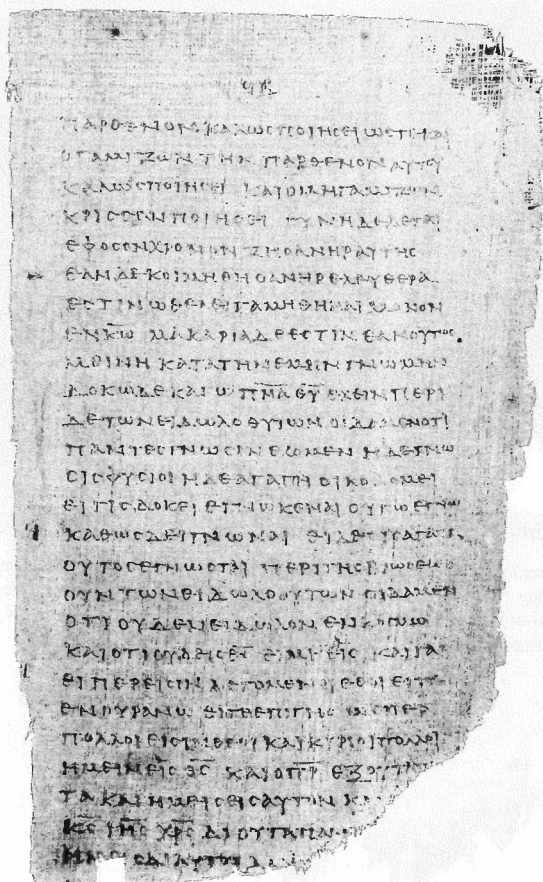 ΠΑΡΘΕΝΟΝ ΚΑΛΩϹ ΠΟΙΗϹΕΙ ΩϹΤΕ ΚΑΙ
Ο ΓΑΜΙΖΩΝ ΤΗΝ ΠΑΡΘΕΝΟΝ ΑΥΤΟΥ
ΚΑΛΩϹ ΠΟΙΗϹΕΙ ΚΑΙ Ο ΜΗ ΓΑΜΙΖΩΝ
ΚΡΙϹϹΟΝ ΠΟΙΗϹΕΙ ΓΥΝΗ ΔΕΔΕΤΑΙ
ΕΦ ΟϹΟΝ ΧΡΟΝΟΝ ΖΗ Ο ΑΝΗΡ ΑΥΤΗϹ
ΕΑΝ ΔΕ ΚΟΙΜΗΘΗ Ο ΑΝΗΡ ΕΛΕΥΘΕΡΑ
ΕϹΤΙΝ Ω ΘΕΛΕΙ ΓΑΜΗΘΗΝΑΙ ΜΟΝΟΝ
ΕΝ Κ̅Ω̅ ΜΑΚΑΡΙΑ ΔΕ ΕϹΤΙΝ ΕΑΝ ΟΥΤΩϹ
ΜΕΙΝΗ ΚΑΤΑ ΤΗΝ ΕΜΗΝ ΓΝΩΜΗΝ
ΔΟΚΩ ΔΕ ΚΑΓΩ Π̅Ν̅Α̅ Θ̅Υ̅ ΕΧΕΙΝ ΠΕΡΙ
ΔΕ ΤΩΝ ΕΙΔΩΛΟΘΥΤΩΝ ΟΙΔΑΜΕΝ ΟΤΙ
ΠΑΝΤΕϹ ΓΝΩϹΙΝ ΕΧΟΜΕΝ Η ΔΕ ΓΝΩ
ϹΙϹ ΦΥϹΙΟΙ Η ΔΕ ΑΓΑΠΗ ΟΙΚΟΔΟΜΕΙ
ΕΙ ΤΙϹ ΔΟΚΕΙ ΕΓΝΩΚΕΝΑΙ ΟΥΠΩ ΕΓΝΩ
ΚΑΘΩϹ ΔΕΙ ΓΝΩΝΑΙ ΕΙ ΔΕ ΤΙϹ ΑΓΑΠΑ
ΟΥΤΟϹ ΕΓΝΩϹΤΑΙ ΠΕΡΙ ΤΗϹ ΒΡΩϹΕΩϹ
ΟΥΝ ΤΩΝ ΕΙΔΩΛΟΘΥΤΩΝ ΟΙΔΑΜΕΝ
ΟΤΙ ΟΥΔΕΝ ΕΙΔΩΛΟΝ ΕΝ ΚΟϹΜΩ
ΚΑΙ ΟΤΙ ΟΥΔΕΙϹ Θ̅Ϲ̅ ΕΙ ΜΗ ΕΙϹ ΚΑΙ ΓΑΡ
ΕΙΠΕΡ ΕΙϹΙΝ ΛΕΓΟΜΕΝΟΙ ΘΕΟΙ ΕΙΤΕ
ΕΝ ΟΥΡΑΝΩ ΕΙΤΕ ΕΠΙ ΓΗϹ ΩϹΠΕΡ
ΠΟΛΛΟΙ ΕΙϹΙΝ ΘΕΟΙ ΚΑΙ ΚΥΡΙΟΙ ΠΟΛΛΟΙ
ΗΜΕΙΝ ΕΙϹ Θ̅Ϲ̅ Ο Π̅Η̅Ρ̅ ΕΞ ΟΥ ΤΑ ΠΑΝ
ΤΑ ΚΑΙ ΗΜΕΙϹ ΕΙϹ ΑΥΤΟΝ Κ
Κ̅Ϲ̅ Ι̅Η̅Ϲ̅ Χ̅Ρ̅Ϲ̅ ΔΙ ΟΥ ΤΑ ΠΑΝ
ΔΙ ΑΥΤΟΥ